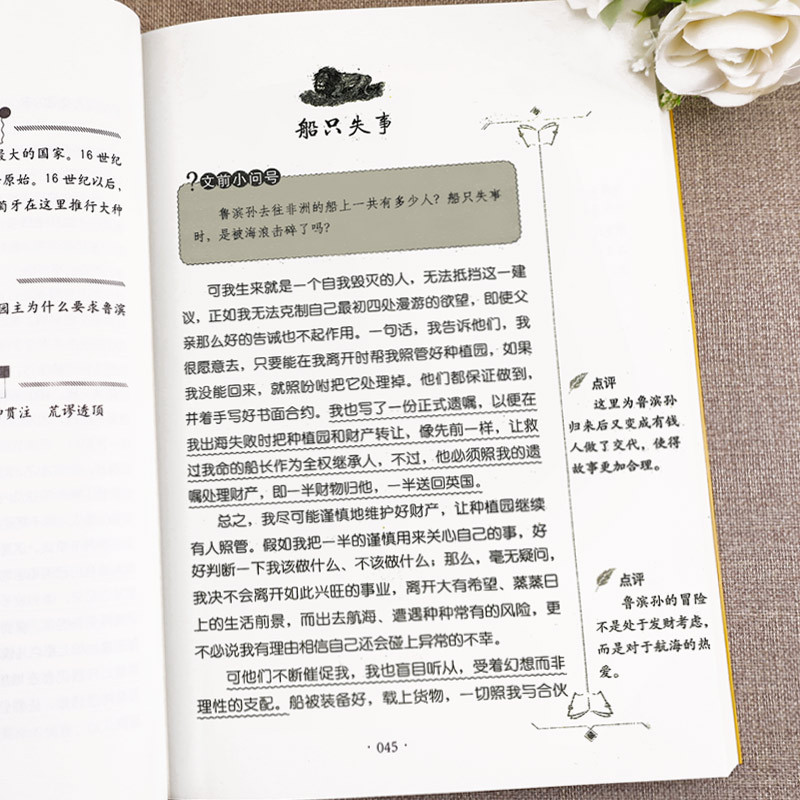 最大的国家。16世纪
原始。16世纪以后，
萄牙在这里推行大种
园主为什么要求鲁滨
贯注 荒谬透顶
船只失事
?文前小问号
鲁滨孙去往非洲的船上一共有多少人？船只失事
时，是被海浪击碎了吗？
可我生来就是一个自我毁灭的人，无法抵挡这一建
议，正如我无法克制自己最初四处漫游的欲望，即使父
亲那么好的告诫也不起作用。一句话，我告诉他们，我
很愿意去，只要能在我离开时帮我照管好种植园，如果
我没能回来，就照吩咐把它处理掉。他们都保证做到，
并着手写好书面合约。我也写了一份正式遗嘱，以便在
我出海失败时把种植园和财产转让，像先前一样，让救
过我命的船长作为全权继承人，不过，他必须照我的遗
嘱处理财产，即一半财物归他，一半送回英国。
总之，我尽可能谨慎地维护好财产，让种植园继续
有人照管。假如我把一半的谨慎用来关心自己的事，好
好判断一下我该做什么、不该做什么；那么，毫无疑问，
我决不会离开如此兴旺的事业，离开大有希望、蒸蒸日
上的生活前景，而出去航海、遭遇种种常有的风险，更
不必说我有理由相信自己还会碰上异常的不幸。
可他们不断催促我，我也盲目听从，受着幻想而非
理性的支配。船被装备好，载上货物，一切照我与合伙
点评
这里为鲁滨孙
归来后又变成有钱
人做了交代，使得
故事更加合理。
点评
鲁滨孙的冒险
不是处于发财考虑，
而是对于航海的热
爱。
·045·